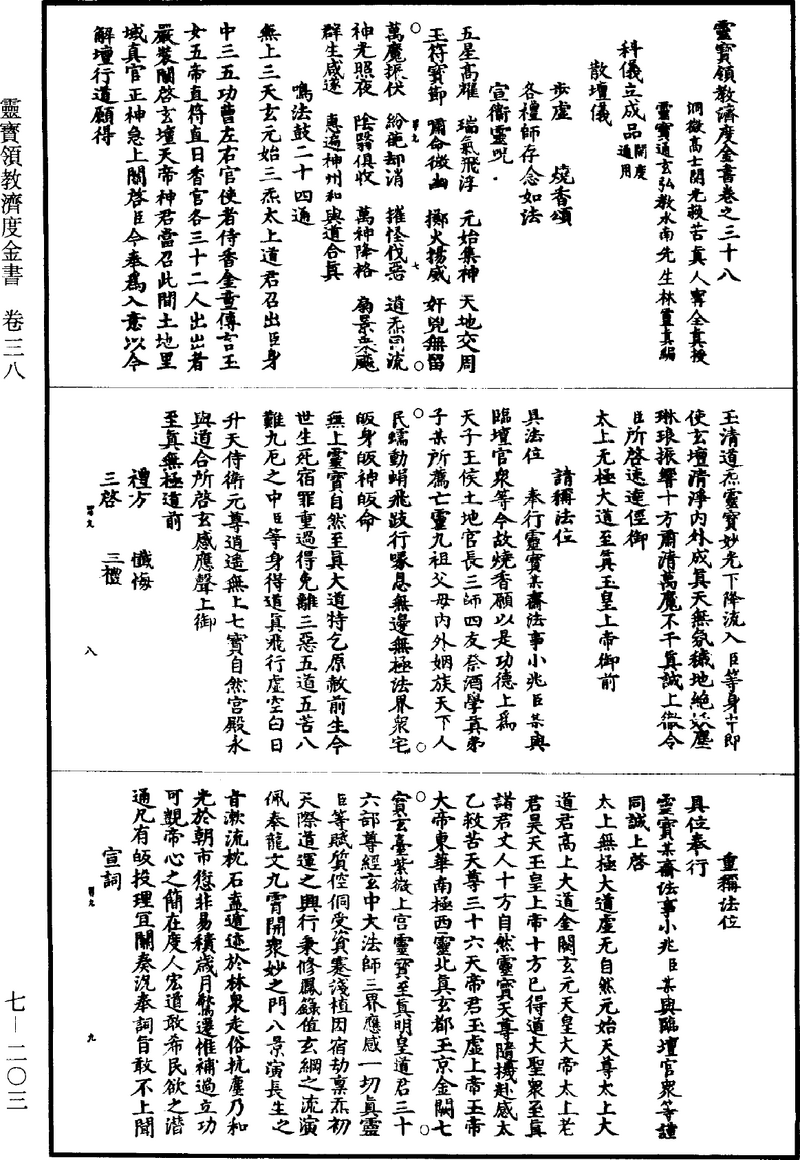 靈寶領教濟度金書卷之三十八
洞微高士開光救苦真人甯全真授
靈寶通玄弘教水南先生林靈真編
科儀立成品開度通用
散壇儀
步虛　燒香頌
各禮師存念如法
宣衞靈呪
五星高耀　瑞氣飛浮　元始集神　天地交周
玉符寶節　嘯命徵幽　擲火揚威　奸兇無留
萬魔振伏　紛葩却消　摧怪伐惡　道炁同流
神光照夜　陰翳俱收　萬神降格　扇景乘飈
群生咸遂　惠遍神州和與道合真
鳴法鼓二十四通
無上三天玄元始三炁太上道君召出臣身
中三五功曹左右官使者侍香金童傳言玉
女五帝直符直日香官各三十二人出出者
嚴裝關啓玄壇天帝神君當召此間土地里
域真官正神急上關啓臣今奉爲入意以今
解壇行道願得
玉清道炁靈寶妙光下降流入臣等身中即
使玄壇清淨內外成真天無氛穢地絕妖塵
琳琅振響十方肅清萬魔不干真誠上徹令
臣所啓速達徑御
太上无極大道至真玉皇上帝御前
請稱法位
具法位　奉行靈寶某齋法事小兆臣某與
臨壇官衆等今故燒香願以是功德上爲
天子王侯土地官長三師四友祭酒學真弟
子某所薦亡靈九祖父母內外姻族天下人
民蠕動蜎飛跂行喙息無邊無極法界衆宅
皈身皈神皈命
無上靈寶自然至真大道特乞原赦前生今
世生死宿罪重過得免離三惡五道五苦八
難九厄之中臣等身得道真飛行虛空白日
升天侍衛元尊逍遙無上七寶自然宮殿永
與道合所啓玄感應聲上御
至真無極道前
禮方　懺悔
三啓　三禮
八
重稱法位
具位奉行
靈寶某齋法事小兆臣某與臨壇官衆等謹
同誠上啓
太上無極大道虛无自然元始天尊太上大
道君高上大道金闕玄元天皇大帝太上老
君昊天玉皇上帝十方已得道大聖衆至真
諸君丈人十方自然靈寶天尊隨機赴感太
乙救苦天尊三十六天帝君玉虛上帝玉帝
大帝東華南極西靈北真玄都玉京金闕七
寶玄臺紫微上宮靈寶至真明皇道君三十
六部尊經玄中大法師三界應感一切真靈
臣等賦質倥侗受資蹇淺植因宿劫稟炁初
天際道運之興行秉修鳳籙值玄綱之流演
佩奉龍文九霄開衆妙之門八景演長生之
旨漱流枕石盍遁迹於林泉走俗抗塵乃和
光於朝市愆非易積歲月驚還惟補過立功
可覬帝心之簡在度人宏道敢希民欲之潛
通凡有皈投理宜關奏況奉詞旨敢不上聞
宣詞
九
靈寶領教濟度金書　卷三八
七—二〇三